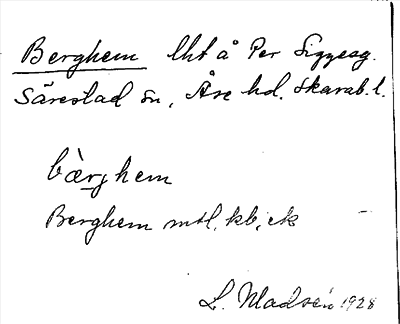 Berghem lht å Per Siggesg.
Särestad sn, Åse hd. Skarab. l.
bærghem
Berghem mtl, kb, ek
L. Madsén 1928